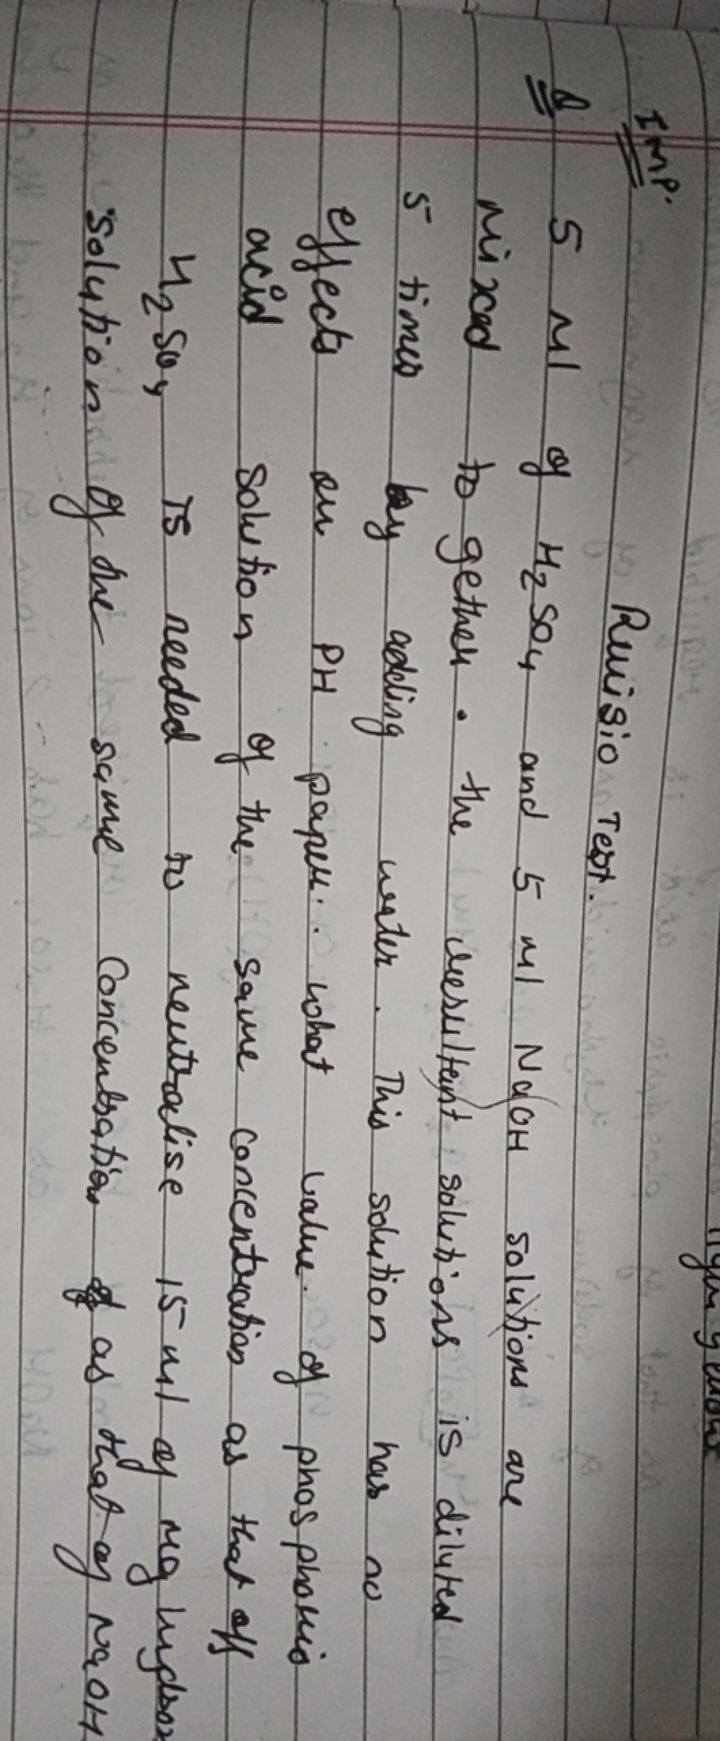 IMP.
Revisio Test.
Q 5 ml of H2SO4 and 5 ml NaOH solutions are
mixed to gether. the resultant solutions is diluted
5 times by adding water. This solution has no
effects on PH paper. what value of phosphoric
acid solution of the same concentration as that off
H2SO4 is needed to neutralise 15 ml of mg hydrox
solution of the same concentration as that of NaOH